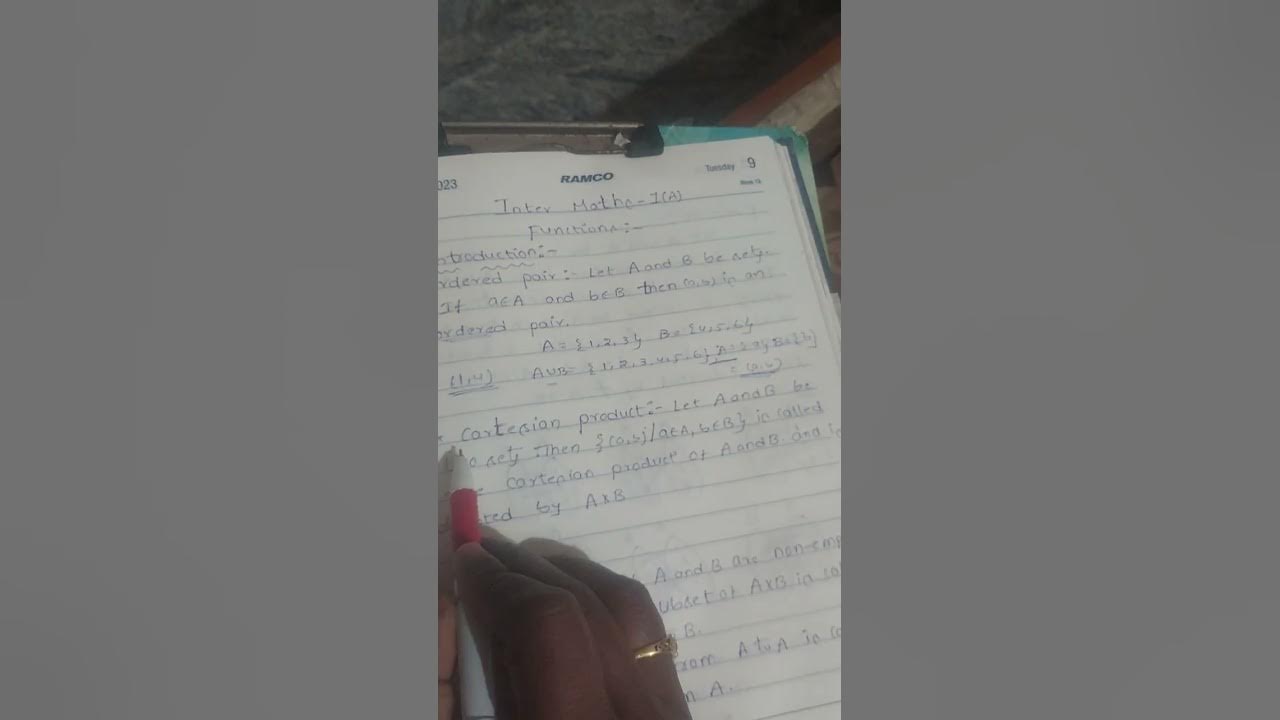 023 RAMCO Tuesday 9
Inter Maths-1(A)
Functions:-
ntroduction:-
rdered pair:- Let A and B be sets.
If a∈A and b∈B then (a,b) is an
ordered pair.
A = {1,2,3} B = {4,5,6}
(1,4) AUB = {1,2,3,4,5,6} A = {a} B = {b}
= (a,b)
Cartesian product:- Let A and B be
o sets. Then {(a,b)/a∈A, b∈B} is called
e cartesian product of A and B. and is
ted by A×B
A and B are non-emp
ubset of A×B is ca
B.
rom A to A is c
n A.